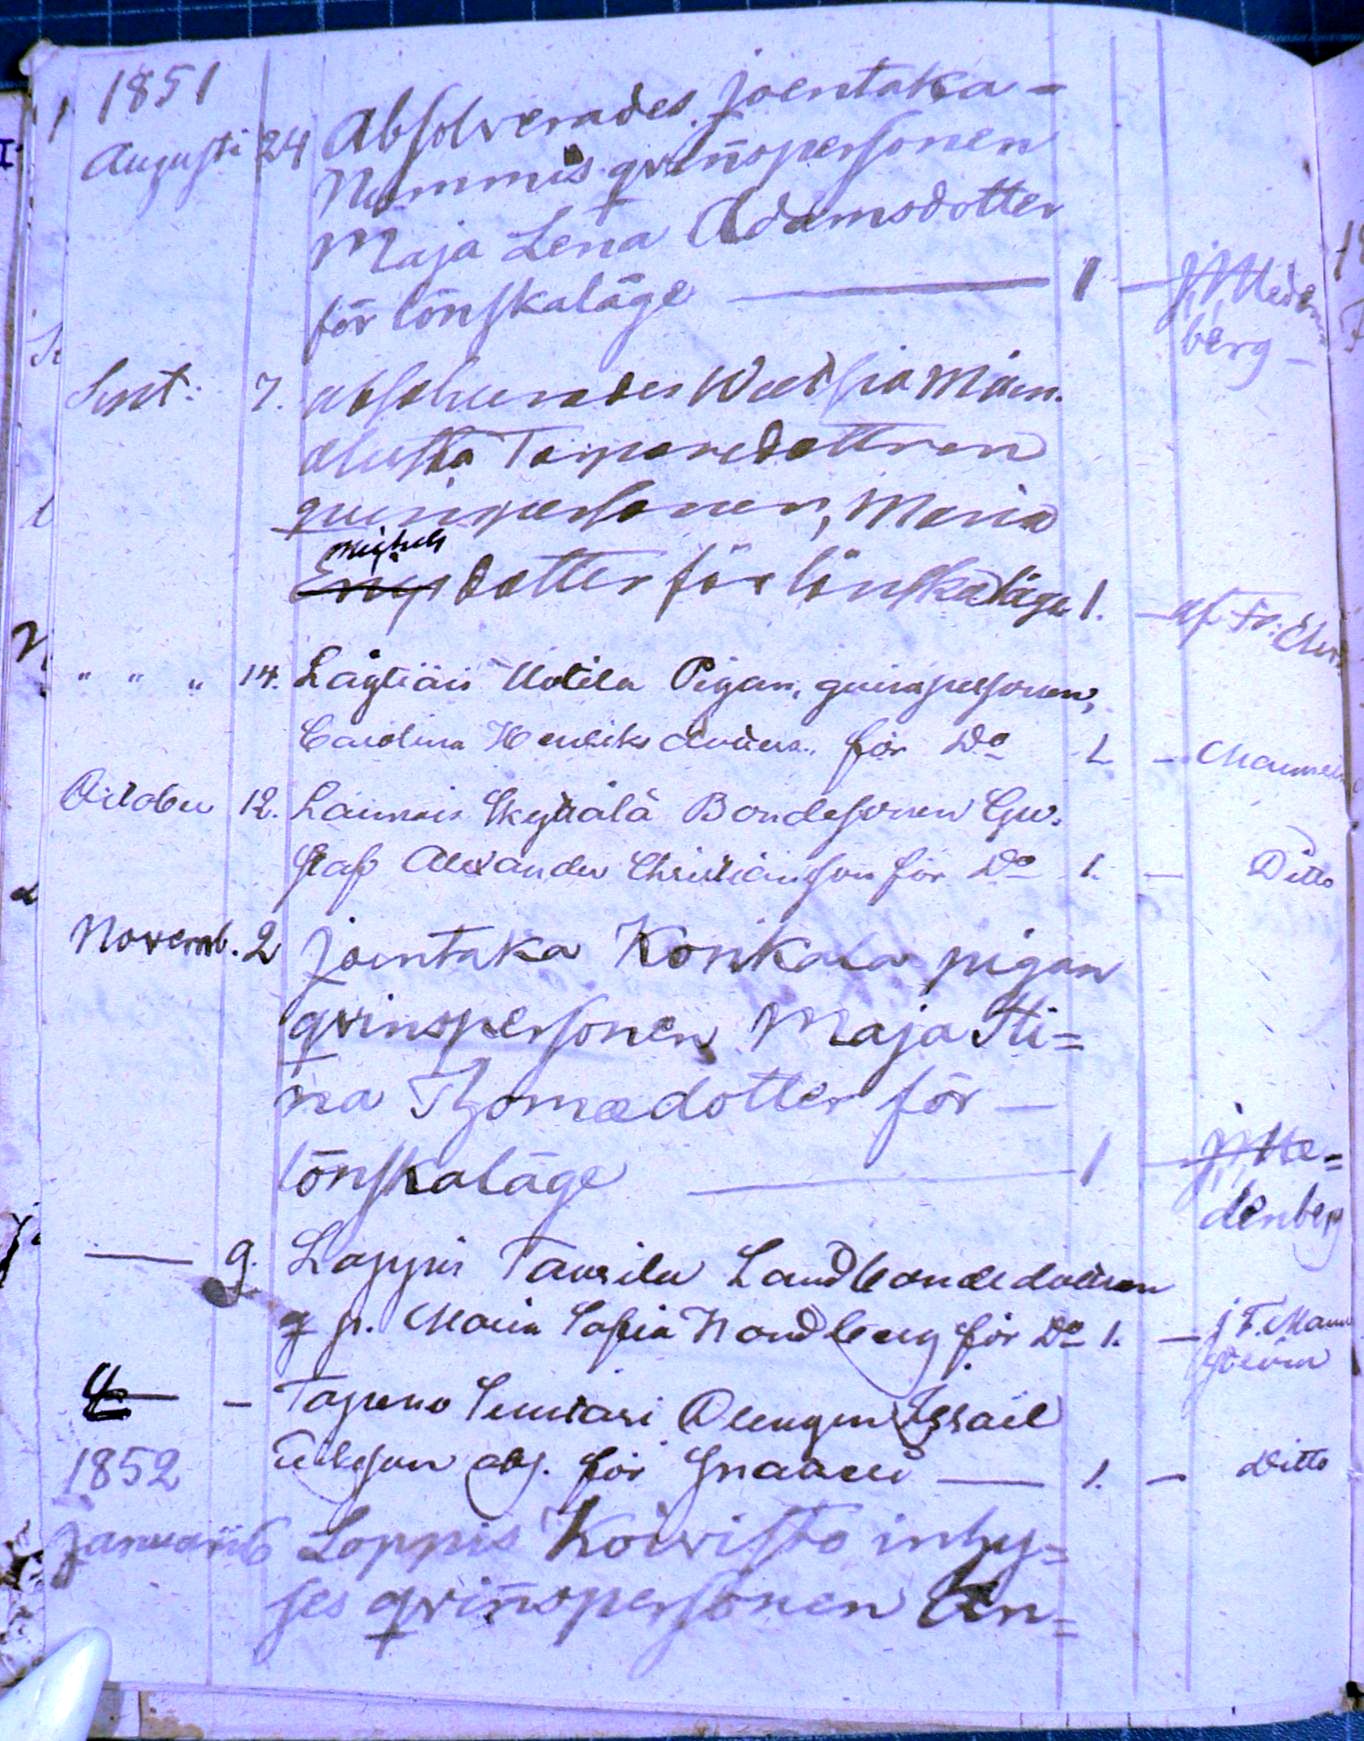 1851
Augusti 24 Absolverades Joentaka=
Nummis qvinspersonen
Maja Lena Adamsdotter
för lönskaläge — 1 — J. J. Meden
berg
Sept. 7. absolverades Maan.
alusta Torparedottren
quinspersonen, Maria
Michels
dotter för lönskaläge 1. — af Fr:
" " " 14. Uotila Pigan, quinspersonen,
Carolina Henriksdotter för Do 1 —
October 12. Skyttälä Bondesonen Gu.
staf Alexander Christiansson för Do 1. — Ditto
Novemb. 2 Joentaka Konkala pigan
qvinspersonen Maja Sti=
na Thomædotter för —
lönskaläge — 1 — J. J. Me=
denberg
— 9. Loppis Taurila Landbondedottren
q p. Maria Sofia Nordberg för Do 1. — J F. Mann
ström
— Drengen Israel
abs. för Snatteri — 1. — Ditto
1852
Januarii 6 Loppis Koivisto inhy=
ses qvinspersonen An=